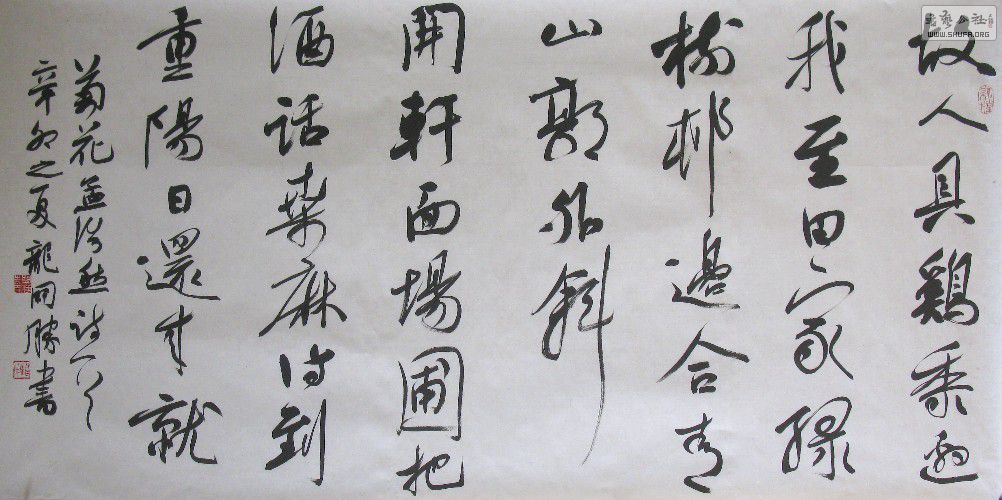 故人具鷄黍邀
我至田家緑
樹邨邊合青
山郭外斜
開軒面場圃把
酒話桑麻待到
重陽日還來就
菊花孟浩然詩一首
辛卯之夏龍開勝書
WWW.SHUFA.ORG